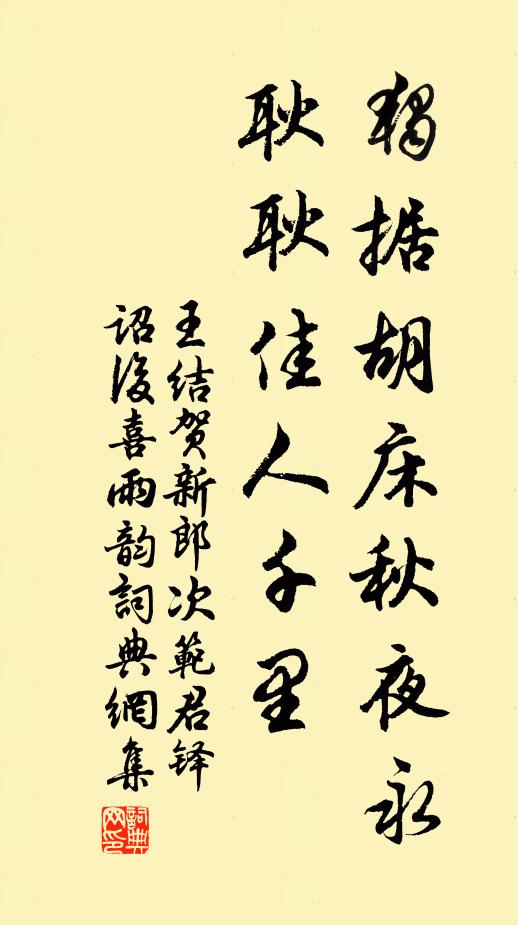 獨据胡床秋夜永
耿耿佳人千里
王结贺新郎次範君铎
诏後喜雨韵詞典網集
詞典網印